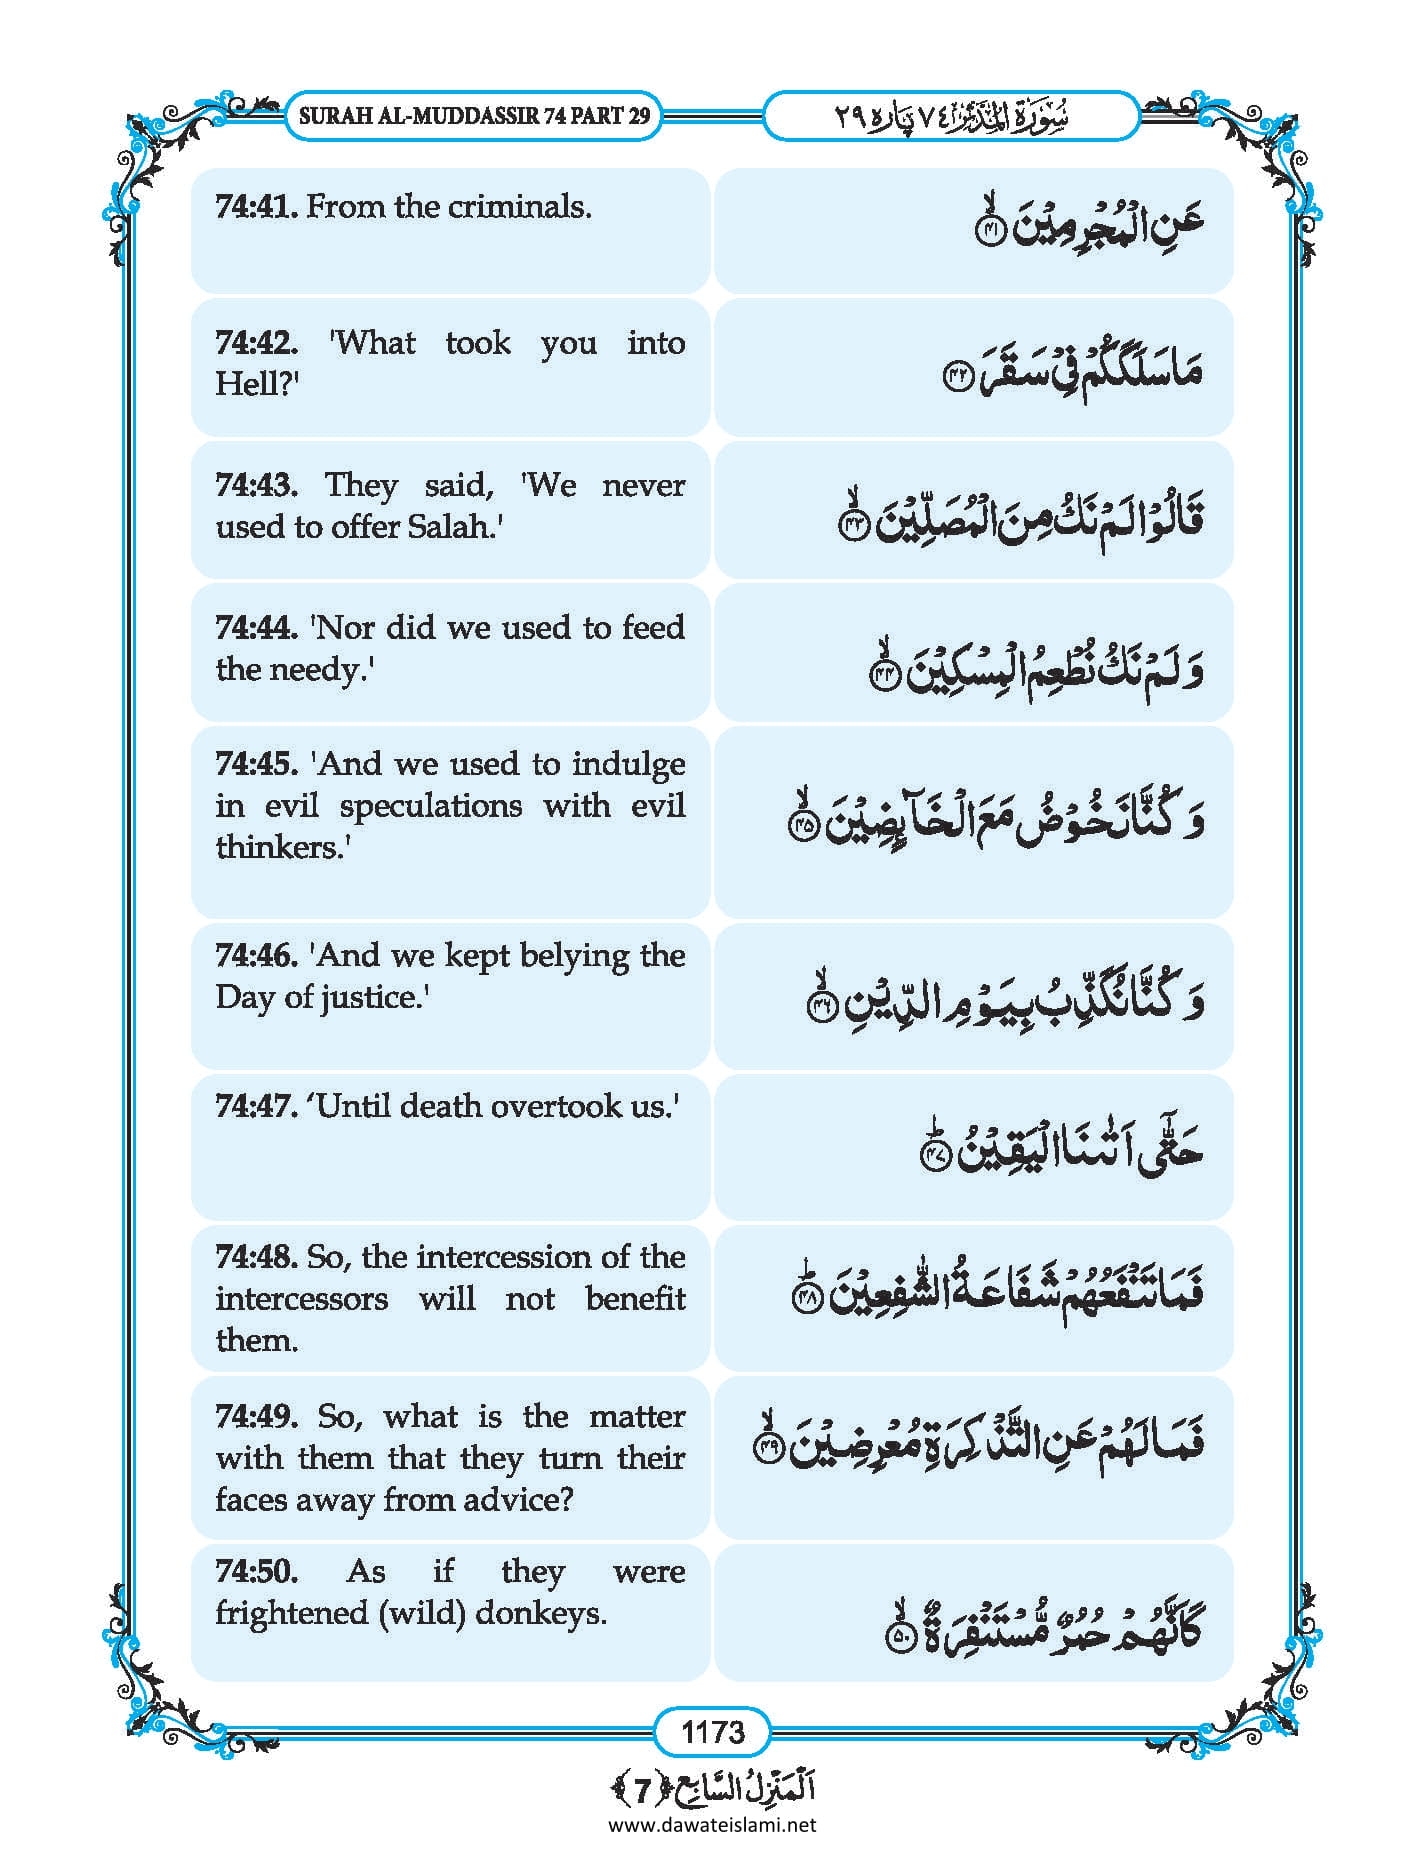 SURAH AL-MUDDASSIR 74 PART 29
سُوْرَةُ الْمُدَّثِّر ٧٤ پاره ٢٩
74:41. From the criminals.
عَنِ الْمُجْرِمِيْنَ ۙ﴿۴۱﴾
74:42. 'What took you into
Hell?'
مَا سَلَكَكُمْ فِيْ سَقَرَ ﴿۴۲﴾
74:43. They said, 'We never
used to offer Salah.'
قَالُوْا لَمْ نَكُ مِنَ الْمُصَلِّيْنَ ۙ﴿۴۳﴾
74:44. 'Nor did we used to feed
the needy.'
وَ لَمْ نَكُ نُطْعِمُ الْمِسْكِيْنَ ۙ﴿۴۴﴾
74:45. 'And we used to indulge
in evil speculations with evil
thinkers.'
وَ كُنَّا نَخُوْضُ مَعَ الْخَآئِضِيْنَ ۙ﴿۴۵﴾
74:46. 'And we kept belying the
Day of justice.'
وَ كُنَّا نُكَذِّبُ بِيَوْمِ الدِّيْنِ ۙ﴿۴۶﴾
74:47. ‘Until death overtook us.'
حَتّٰۤى اَتٰىنَا الْيَقِيْنُ ؕ﴿۴۷﴾
74:48. So, the intercession of the
intercessors will not benefit
them.
فَمَا تَنْفَعُهُمْ شَفَاعَةُ الشّٰفِعِيْنَ ؕ﴿۴۸﴾
74:49. So, what is the matter
with them that they turn their
faces away from advice?
فَمَا لَهُمْ عَنِ التَّذْكِرَةِ مُعْرِضِيْنَ ۙ﴿۴۹﴾
74:50. As if they were
frightened (wild) donkeys.
كَاَنَّهُمْ حُمُرٌ مُّسْتَنْفِرَةٌ ۙ﴿۵۰﴾
1173
اَلْمَنْزِلُ السَّابِع ﴿7﴾
www.dawateislami.net